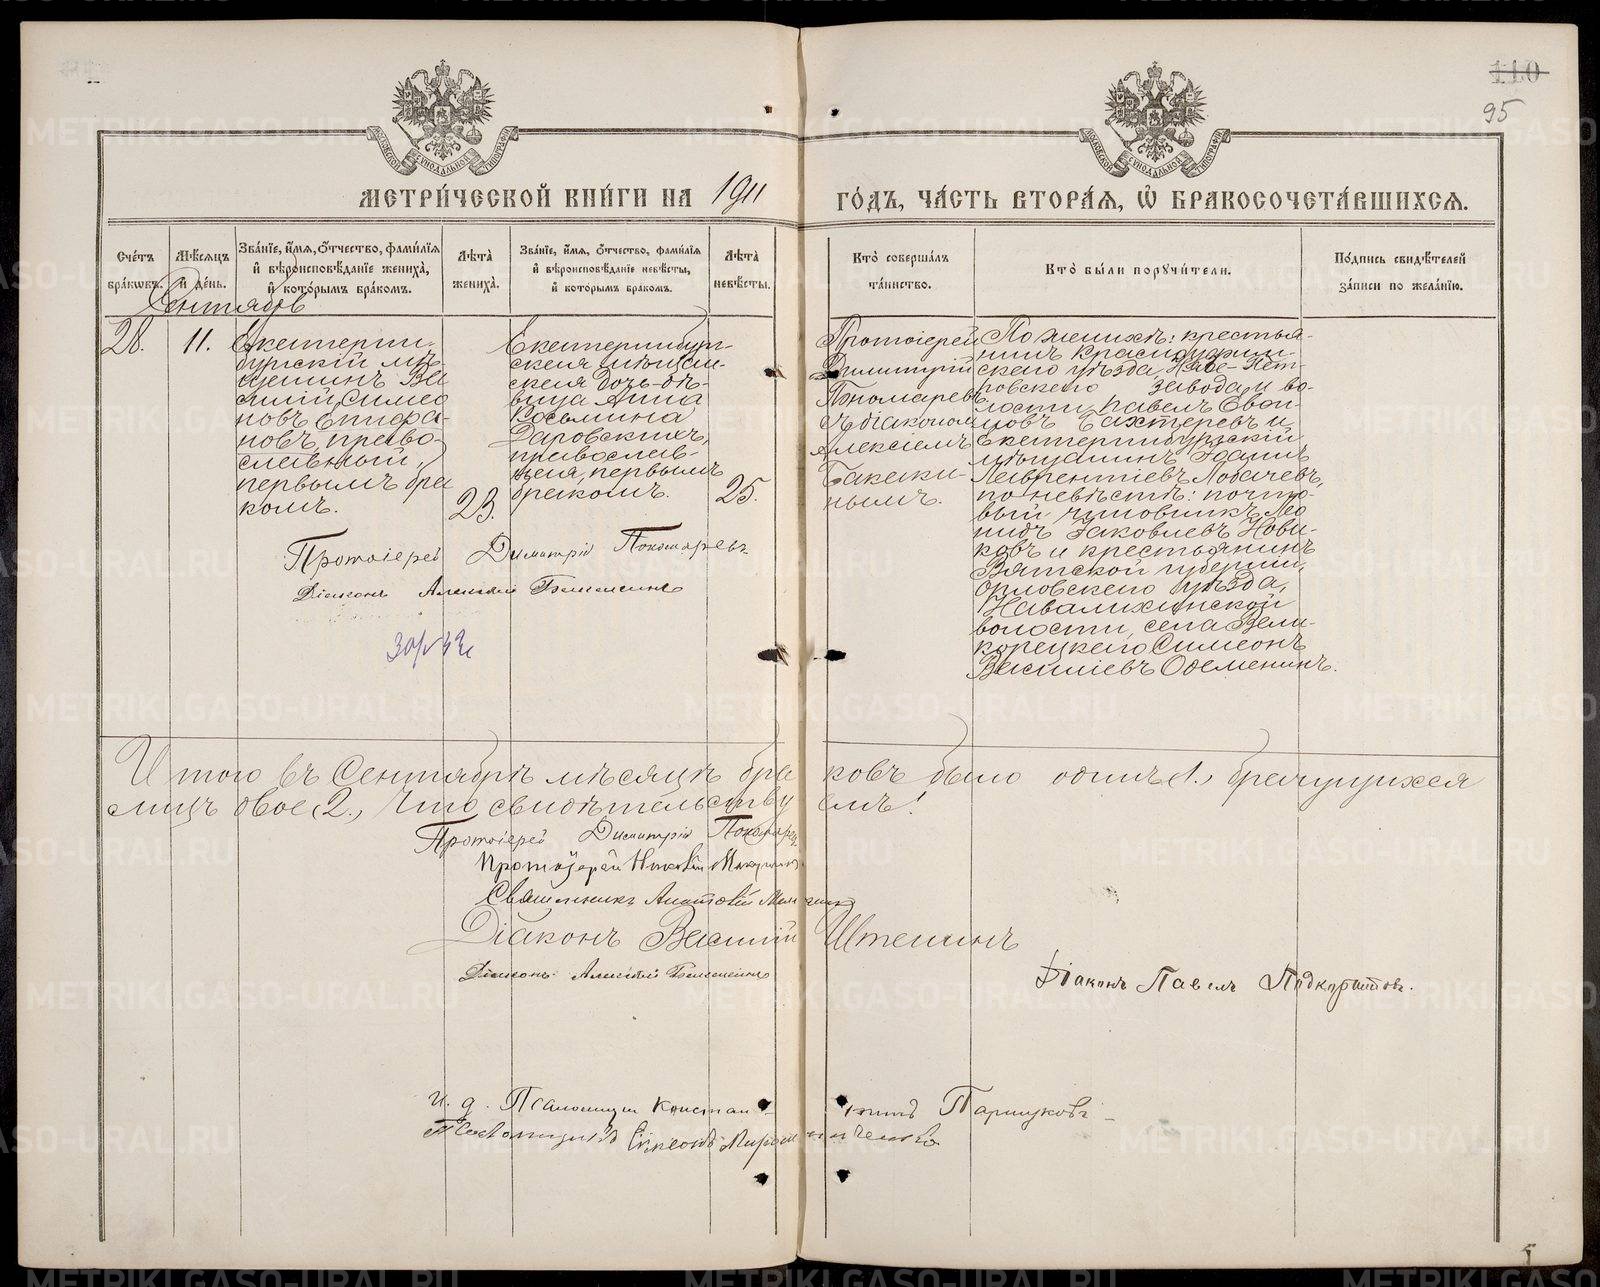 110
95
МОСКОВСКОЙ СѴНОДАЛЬНОЙ ТИПОГРАФІИ
МОСКОВСКОЙ СѴНОДАЛЬНОЙ ТИПОГРАФІИ
МЕТРИ́ЧЕСКОЙ КНИ́ГИ НА 1911 ГО́ДЪ, ЧА́СТЬ ВТОРА́Я, Ѽ БРАКОСОЧЕТА́ВШИХСЯ.
Сче́тъ бра́кωвъ.
Мѣ́сяцъ и҆ де́нь.
Зва́нїе, и҆́мя, ѻ҆́тчество, фами́лїя и҆ вѣроисповѣ́данїе жениха̀, и҆ кото́рымъ бра́комъ.
Лѣ́та жениха̀.
Зва́нїе, и҆́мя, ѻ҆́тчество, фами́лїя и҆ вѣроисповѣ́данїе невѣ́сты, и҆ кото́рымъ бра́комъ.
Лѣ́та невѣ́сты.
Кто̀ соверша́лъ та́инство.
Кто̀ бы́ли порꙋчи́тели.
По́дпись свидѣ́телей за́писи по жела́нїю.
Сентябрь
28.
11.
Екатерин-
бургскій мѣ-
щанинъ Ва
силій Симео
новъ Епифа-
новъ, право-
славный,
первымъ бра
комъ.
23.
Екатеринбург-
ская мѣщан-
ская дочь-дѣ-
вица Анна
Косьмина
Даровскихъ,
православ-
ная, первымъ
бракомъ.
25.
Протоіерей
Димитрій
Пономаревъ
съ діакономъ
Алексіемъ
Бакаки-
нымъ.
По женихѣ: крестья-
нинъ Красноуфим-
скаго уѣзда, Нязе-Пет-
ровскаго завода и во-
лости Павелъ Евфи-
мовъ Бахтеревъ и
Екатеринбургскій
мѣщанинъ Іоаннъ
Лаврентіевъ Лобачевъ,
по невѣстѣ: почто-
вый чиновникъ Лео
нидъ Іаковлевъ Нови-
ковъ и крестьянинъ
Вятской губерніи,
Орловскаго уѣзда,
Навалихинской
волости, села Вели-
корецкаго Симеонъ
Василіевъ
Протоіерей Димитрій Пономаревъ
Діаконъ Алексій
Итого въ Сентябрѣ мѣсяцѣ бра ковъ было одинъ (1.), брачущихся
лицъ двое (2.), Что свидѣтельству емъ!
Протоіерей Димитрій Пономаревъ
Протоіерей
Священникъ Анатолій
Діаконъ Василій Штенинъ
Діаконъ Алексій
Діаконъ Павелъ Подкорытовъ.
и. д. Псаломщика Констан- тинъ Паршуковъ
Псаломщикъ Симеонъ Мирошниченко
METRIKI.GASO-URAL.RU